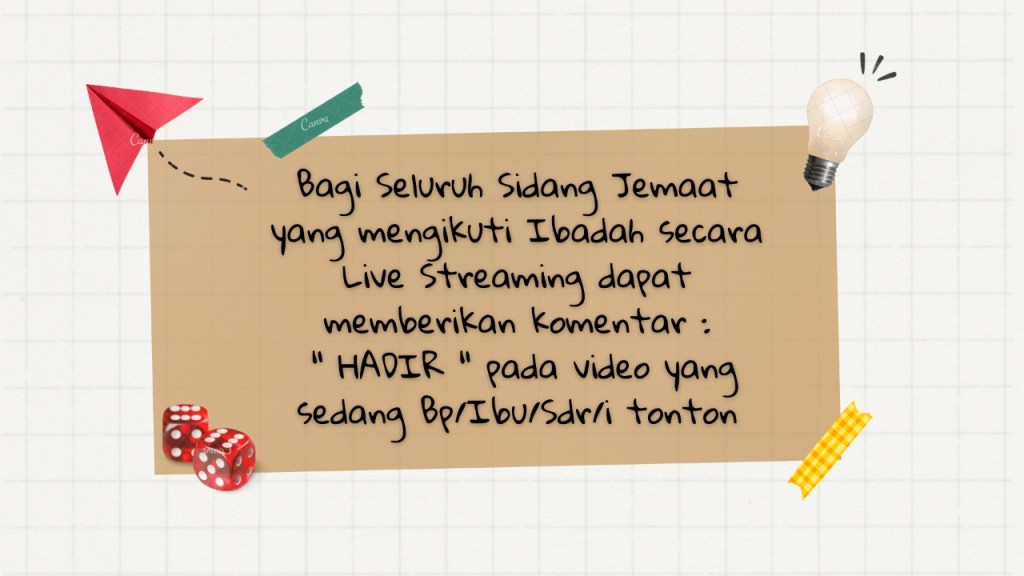 Bagi Seluruh Sidang Jemaat
yang mengikuti Ibadah secara
Live Streaming dapat
memberikan komentar :
" HADIR " pada video yang
sedang Bp/Ibu/Sdr/i tonton
Canva
Canva